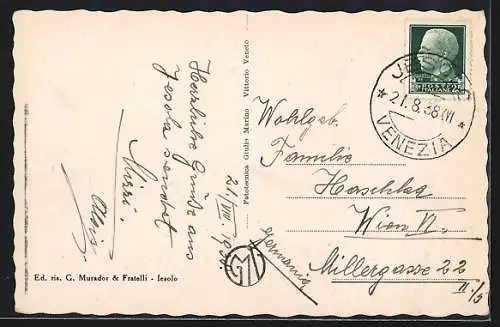 Herzliche Grüße aus
Jesolo sendet
Mizzi.
Alois
21/VIII. 1938.
Ed. ris. G. Murador & Fratelli - Iesolo
Fototecnica Giulio Marino Vittorio Veneto
POSTE ITALIANE
21.8.38 XVI
VENEZIA
Wohlgeb.
Familie
Haschka
Wien VI.
Millergasse 22
II./5
Germania